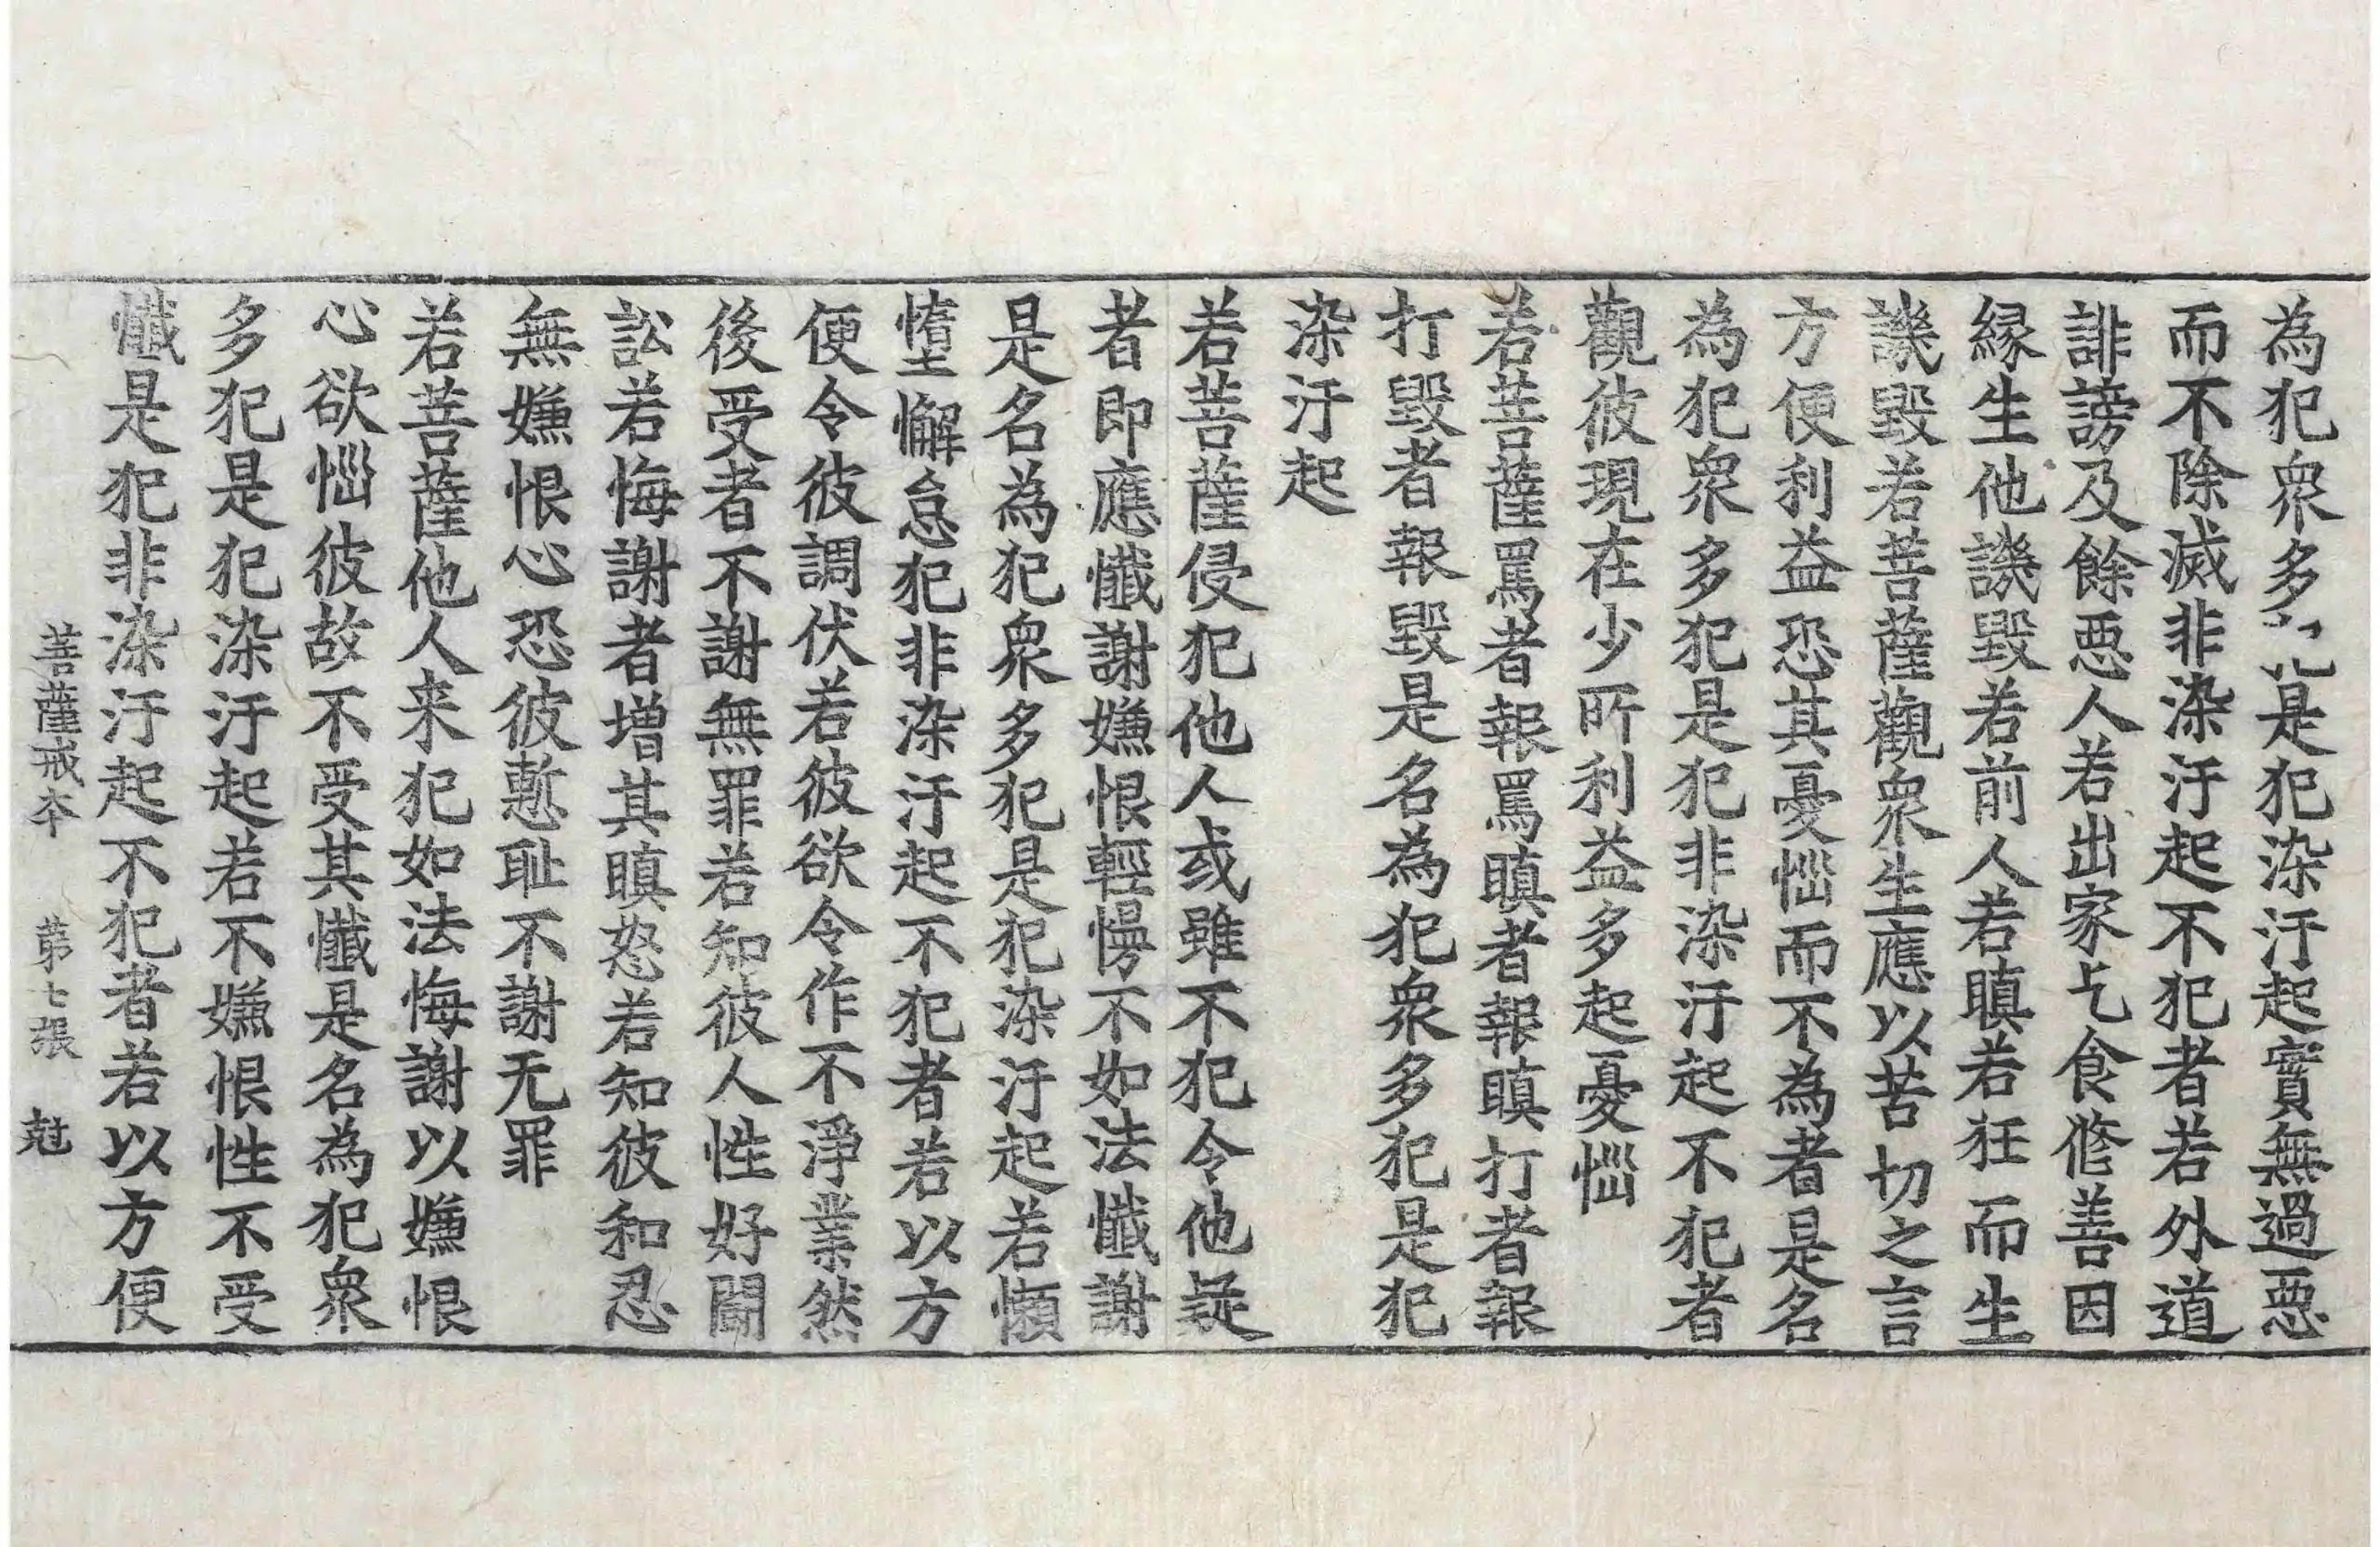 為犯衆多犯是犯染汙起實無過惡
而不除滅非染汙起不犯者若外道
誹謗及餘惡人若出家乞食修善因
緣生他譏毀若前人若瞋若狂而生
譏毀若菩薩觀衆生應以苦切之言
方便利益恐其憂惱而不為者是名
為犯衆多犯是犯非染汙起不犯者
觀彼現在少所利益多起憂惱
若菩薩罵者報罵瞋者報瞋打者報
打毀者報毀是名為犯衆多犯是犯
染汙起
若菩薩侵犯他人或雖不犯令他疑
者即應懺謝嫌恨輕慢不如法懺謝
是名為犯衆多犯是犯染汙起若懶
墮懈怠犯非染汙起不犯者若以方
便令彼調伏若彼欲令作不淨業然
後受者不謝無罪若知彼人性好鬪
訟若悔謝者增其瞋怒若知彼和忍
無嫌恨心恐彼慙耻不謝无罪
若菩薩他人来犯如法悔謝以嫌恨
心欲惱彼故不受其懺是名為犯衆
多犯是犯染汙起若不嫌恨性不受
懺是犯非染汙起不犯者若以方便
菩薩戒本 第七張 尅